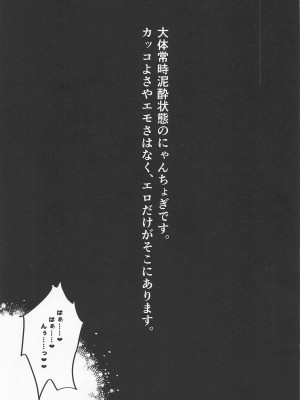 大体常時泥酔状態のにゃんちょぎです。
カッコよさやエモさはなく、エロだけがそこにあります。
はぁ……♥
はぁ……♥
んぅ……っ♥♥